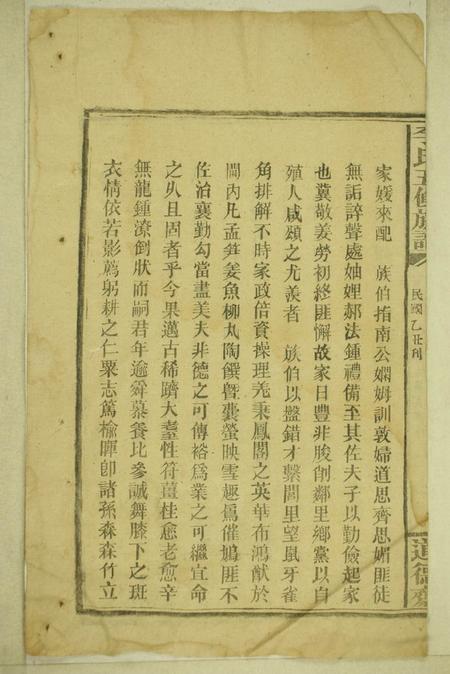 李氏五修族譜
民國乙丑刊
道德堂
家媛來配　族伯指南公嫻姆訓敦婦道思齊思媚匪徒
無詬誶聲處妯娌郝法鍾禮備至其佐夫子以勤儉起家
也冀敬姜勞初終匪懈故家日豐非朘削鄰里鄉黨以自
殖人咸頌之尤羨者　族伯以盤錯才繫閭里望鼠牙雀
角排解不時家政倍資操理羗秉鳳閣之英華布鴻猷於
閫内凡孟筍姜魚柳丸陶饌曁囊螢映雪趣爲催鳩匪不
佐治襄勤勾當盡美夫非德之可傳裕爲業之可繼宜命
之久且固者乎今果邁古稀躋大耋性符薑桂愈老愈辛
無龍鍾潦倒狀而嗣君年逾舜慕養比參誠舞膝下之班
衣情依若影爲躬耕之仁粟志篤榆暉卽諸孫森森竹立